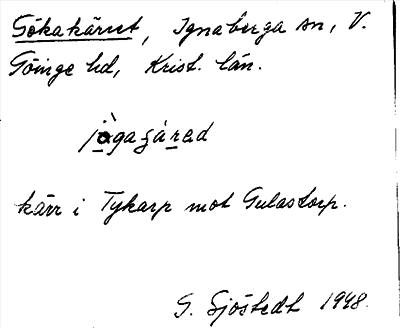 Gökakärret, Ignaberga sn, V.
Göinge hd, Krist. län.
kärr i Tykarp mot Gulastorp.
G. Sjöstedt 1948.